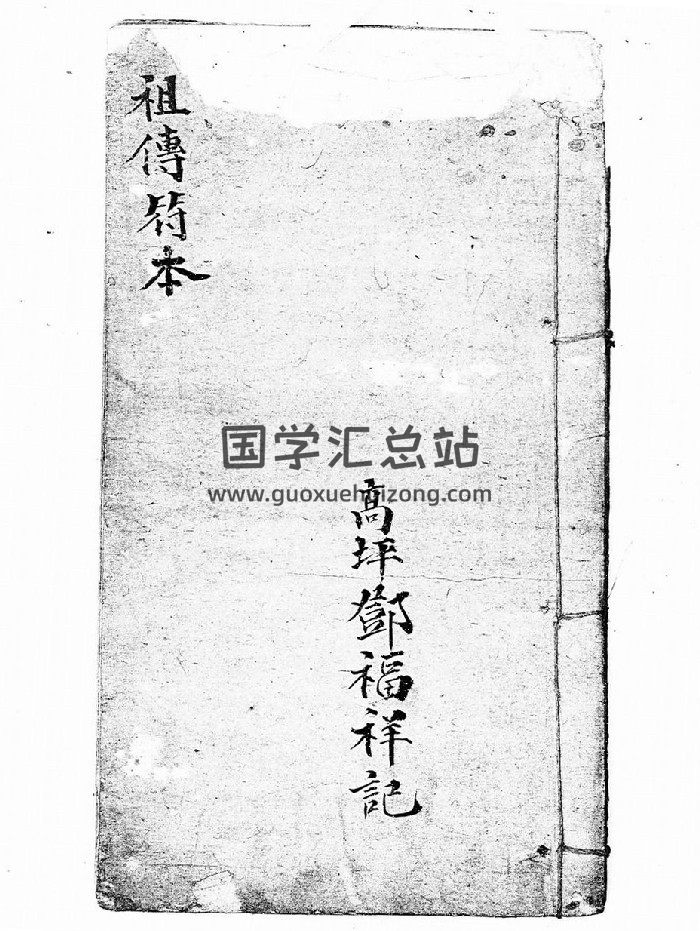 祖傳符本
国学汇总站
www.guoxuehuizong.com
高坪鄧福祥記